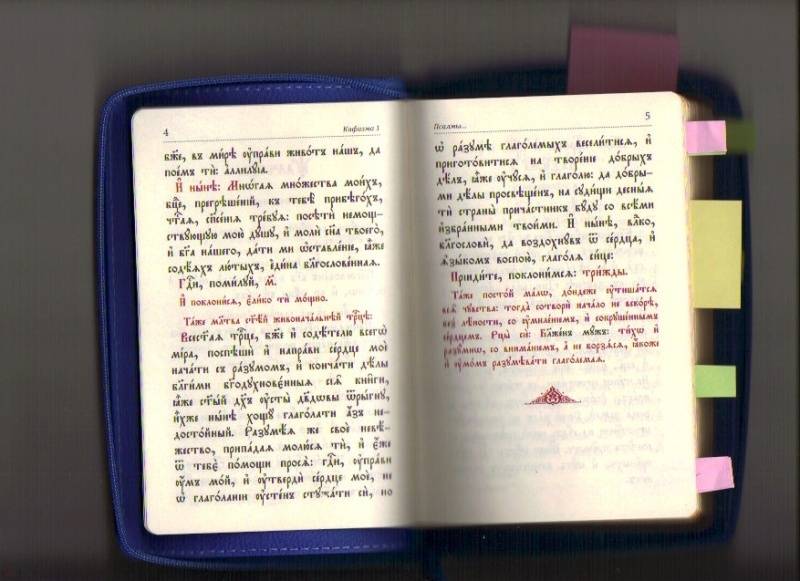 4
Каѳизма 1
бж҃е, въ ми́рѣ ᲂу҆пра́ви живо́тъ на́шъ, да
пое́мъ тѝ: а҆ллилꙋ́їа.
И҆ ны́нѣ: Мнѡ́гая мно́жества мои́хъ,
бц҃е, прегрѣше́нїй, къ тебѣ̀ прибѣго́хъ,
чт҃ая, сп҃се́нїѧ тре́бꙋѧ: посѣтѝ немощ-
ствꙋ́ющꙋю мою̀ дꙋ́шꙋ, и҆ молѝ сн҃а твоего̀,
и҆ бг҃а на́шего, да́ти мѝ ѡ҆ставле́нїе, ꙗ҆̀же
содѣ́ѧхъ лю́тыхъ, є҆ди́на бл҃гослове́ннаѧ.
Гдⷭ҇и, поми́лꙋй, м҃.
И҆ поклони́сѧ, є҆ли́кѡ тѝ мо́щно.
Та́же мл҃тва ст҃ѣ́й живонача́льнѣй трⷪ҇цѣ:
Всест҃а́ѧ трⷪ҇це, бж҃е и҆ содѣ́телю всегѡ̀
мі́ра, поспѣшѝ и҆ напра́ви се́рдце моѐ
нача́ти съ ра́зꙋмомъ, и҆ конча́ти дѣ́лы
бл҃ги́ми бг҃одꙋхнове́нныѧ сїѧ̑ кни̑ги,
ꙗ҆̀же ст҃ы́й дх҃ъ ᲂу҆сты̀ дв҃дѡвы ѿры́гнꙋ,
и҆̀хже ны́нѣ хощꙋ̀ глаго́лати а҆́зъ не-
досто́йный. Разꙋмѣ́ѧ же своѐ невѣ́-
жество, припа́даѧ молю́сѧ тѝ, и҆ є҆́же
ѿ тебє̀ по́мощи просѧ̀: гдⷭ҇и, ᲂу҆пра́ви
ᲂу҆́мъ мо́й, и҆ ᲂу҆твердѝ се́рдце моѐ, не
ѡ҆ глаго́ланїи ᲂу҆сте́нъ стꙋжа́ти сѝ, но
5
Псалмы...
ѡ҆ ра́зꙋмѣ глаго́лемыхъ весели́тисѧ, и҆
пригото́витисѧ на творе́нїе до́брыхъ
дѣ́лъ, ꙗ҆̀же ᲂу҆чꙋ́сѧ, и҆ глаго́лю: да до́бры-
ми дѣ́лы просвѣще́нъ, на сꙋди́щи десны́ѧ
тѝ страны̀ прича́стникъ бꙋ́дꙋ со всѣ́ми
и҆збра́нными твои́ми. И҆ ны́нѣ, влⷣко,
бл҃гословѝ, да воздохнꙋ́въ ѿ се́рдца, и҆
ꙗ҆зы́комъ воспою̀, глаго́лѧ си́це:
Прїиди́те, поклони́мсѧ: три́жды.
Та́же посто́й ма́лѡ, до́ндеже ᲂу҆тиша́тсѧ
всѧ̑ чꙋ̑вства: тогда̀ сотворѝ нача́ло не вско́рѣ,
без̾ лѣ́ности, со ᲂу҆миле́нїемъ, и҆ сокрꙋше́ннымъ
се́рдцемъ. Рцы̀ сїѐ: Бл҃же́нъ мꙋ́жъ: ти́хѡ и҆
разꙋ́мнѡ, со внима́нїемъ, а҆ не борзѧ́сѧ, ꙗ҆́коже
и҆ ᲂу҆мо́мъ разꙋмѣва́ти глаго́лемаѧ.